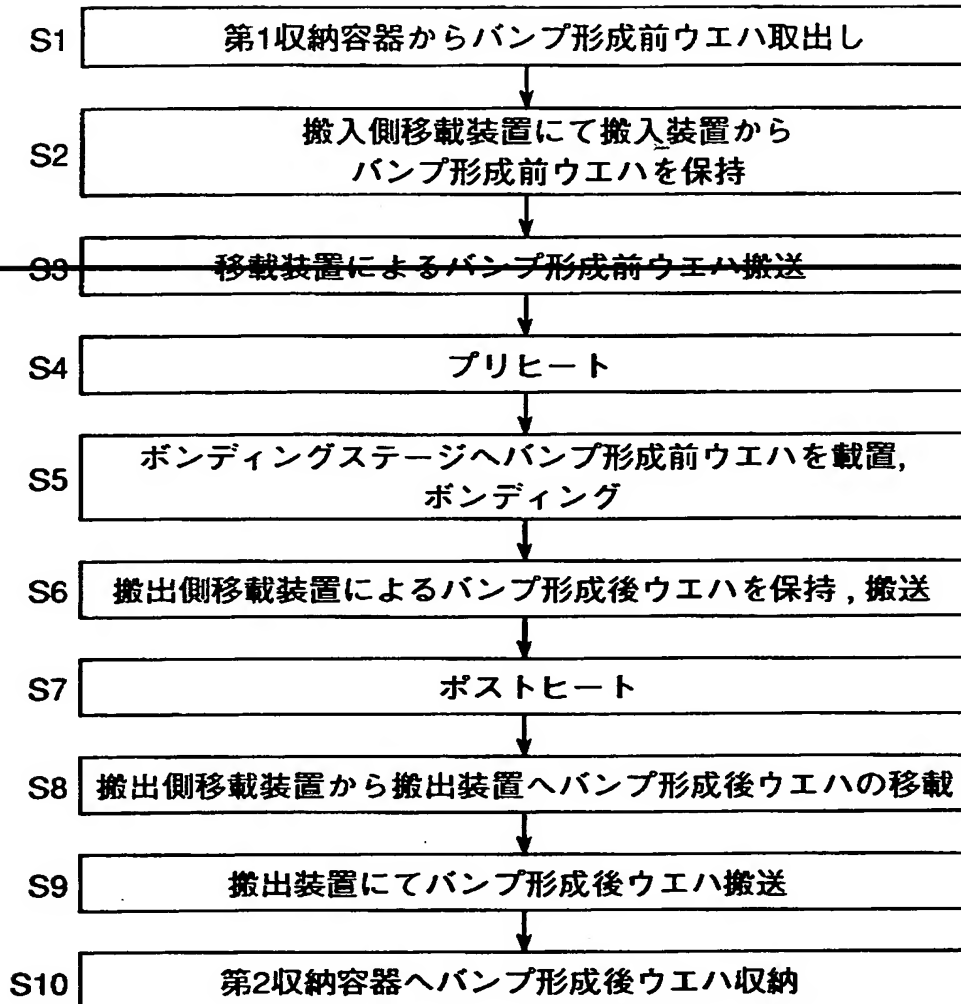 S1 第1収納容器からバンプ形成前ウエハ取出し
S2 搬入側移載装置にて搬入装置から
バンプ形成前ウエハを保持
S3 移載装置によるバンプ形成前ウエハ搬送
S4 プリヒート
S5 ボンディングステージへバンプ形成前ウエハを載置,
ボンディング
S6 搬出側移載装置によるバンプ形成後ウエハを保持 , 搬送
S7 ポストヒート
S8 搬出側移載装置から搬出装置へバンプ形成後ウエハの移載
S9 搬出装置にてバンプ形成後ウエハ搬送
S10 第2収納容器へバンプ形成後ウエハ収納